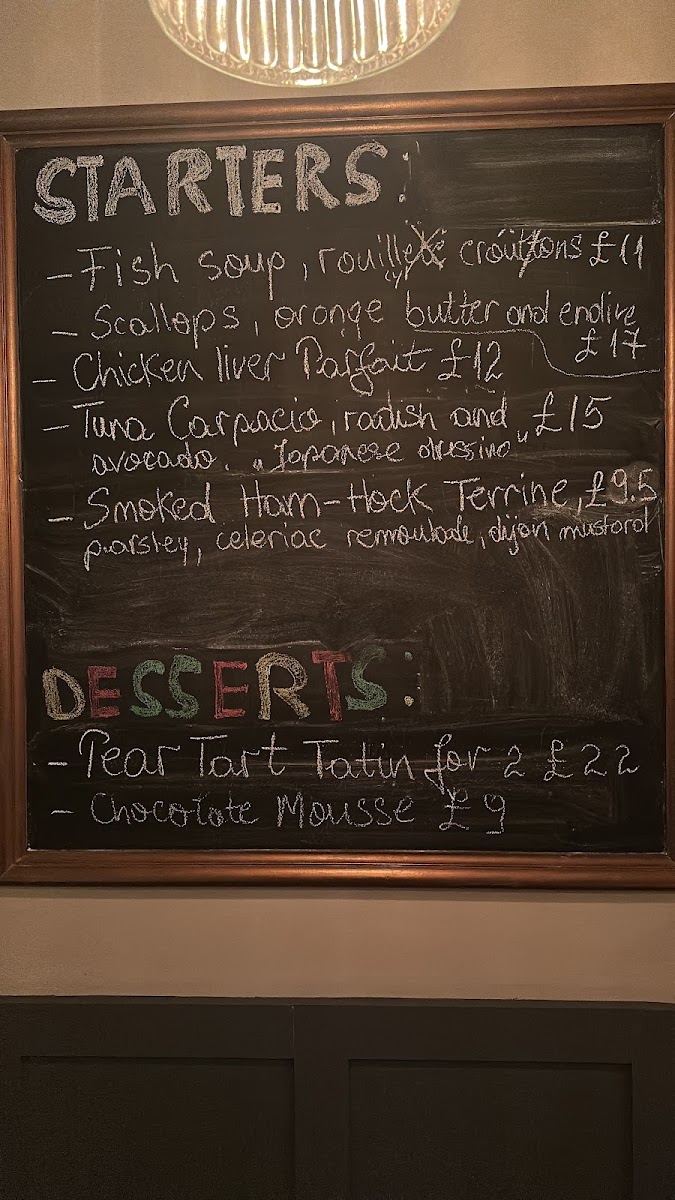 STARTERS:
- Fish soup, rouille croûtons £11
- Scallops, orange butter and endive
£17
- Chicken liver Parfait £12
- Tuna Carpacio, radish and £15
avocado. „Japanese dressing"
- Smoked Ham-Hock Terrine, £9.5
parsley, celeriac remoulade, dijon mustard
DESSERTS:
- Pear Tart Tatin for 2 £22
- Chocolate Mousse £9